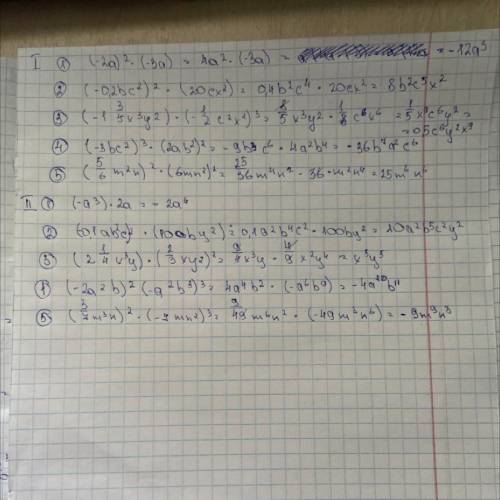 I ① (-2a)² · (-3a) = 4a² · (-3a) = = -12a³
② (-0,2bc²)² · (20cx²) = 0,4b²c⁴ · 20cx² = 8b²c⁵x²
③ (-1 3/5 x³y²) · (-1/2 c²x²)³ = 8/5 x³y² · 1/8 c⁶x⁶ = 1/5 x⁹c⁶y² =
= 0,5c⁶y²x⁹
④ (-3bc²)³ · (2ab²)² = -9b³c⁶ · 4a²b⁴ = -36b⁷a²c⁶
⑤ (5/6 m²n)² · (6mn²)² = 25/36 m⁴n² - 36 · m²n⁴ = 25m⁶n⁶
II ① (-a³) · 2a = -2a⁴
② · (100by²) = 0,1a²b⁴c² · 100by² = 10a²b⁵c²y²
③ (2 1/4 x³y) · (2/3 xy²)² = 9/4 x³y · 4/9 x²y⁴ = x⁵y⁵
(-2a²b)² (-a²b³)³ = 4a⁴b² · (-a⁶b⁹) = -4a¹⁰b¹¹
⑤ (3/7 m³n)² · (-7mn²)³ = 9/49 m⁶n² · (-49m³n⁶) = -9m⁹n⁸